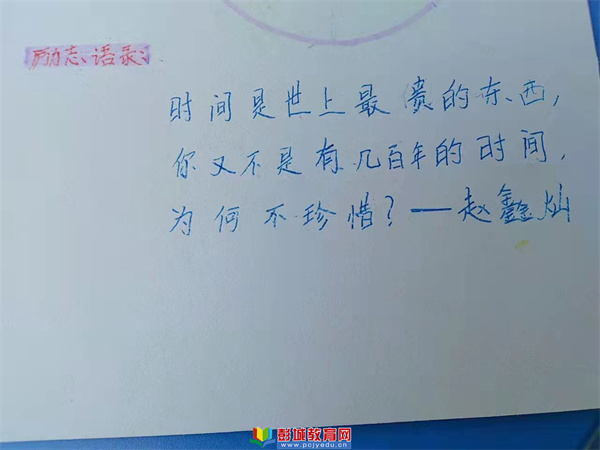 励志语录:
时间是世上最贵的东西,
你又不是有几百年的时间,
为何不珍惜?—赵鑫灿
彭城教育网
www.pcjyedu.com